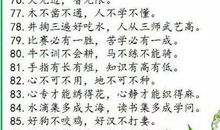 77. 木不凿不通，人不学不懂。
78. 井掏三遍好吃水，人从三师武艺高。
79. 比赛必有一胜，苦学必有一成。
80. 牛不训不会耕，马不练不能骑。
81. 手指有长有短，知识有高有低。
82. 心不可不用，地不可不种。
83. 心专才能绣得花，心静才能织得麻。
84. 水滴集多成大海，读书集多成学问。
85. 好狗不咬鸡，好汉不打妻。